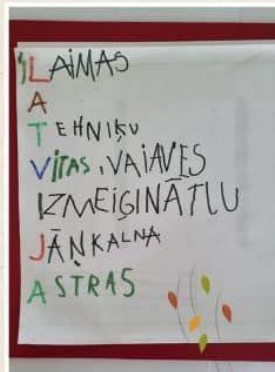 LAIMAS
A
TEHNIĶU
VITAS, VAIAVES
IZMEIĢINĀTLU
JĀŅKALNA
ASTRAS